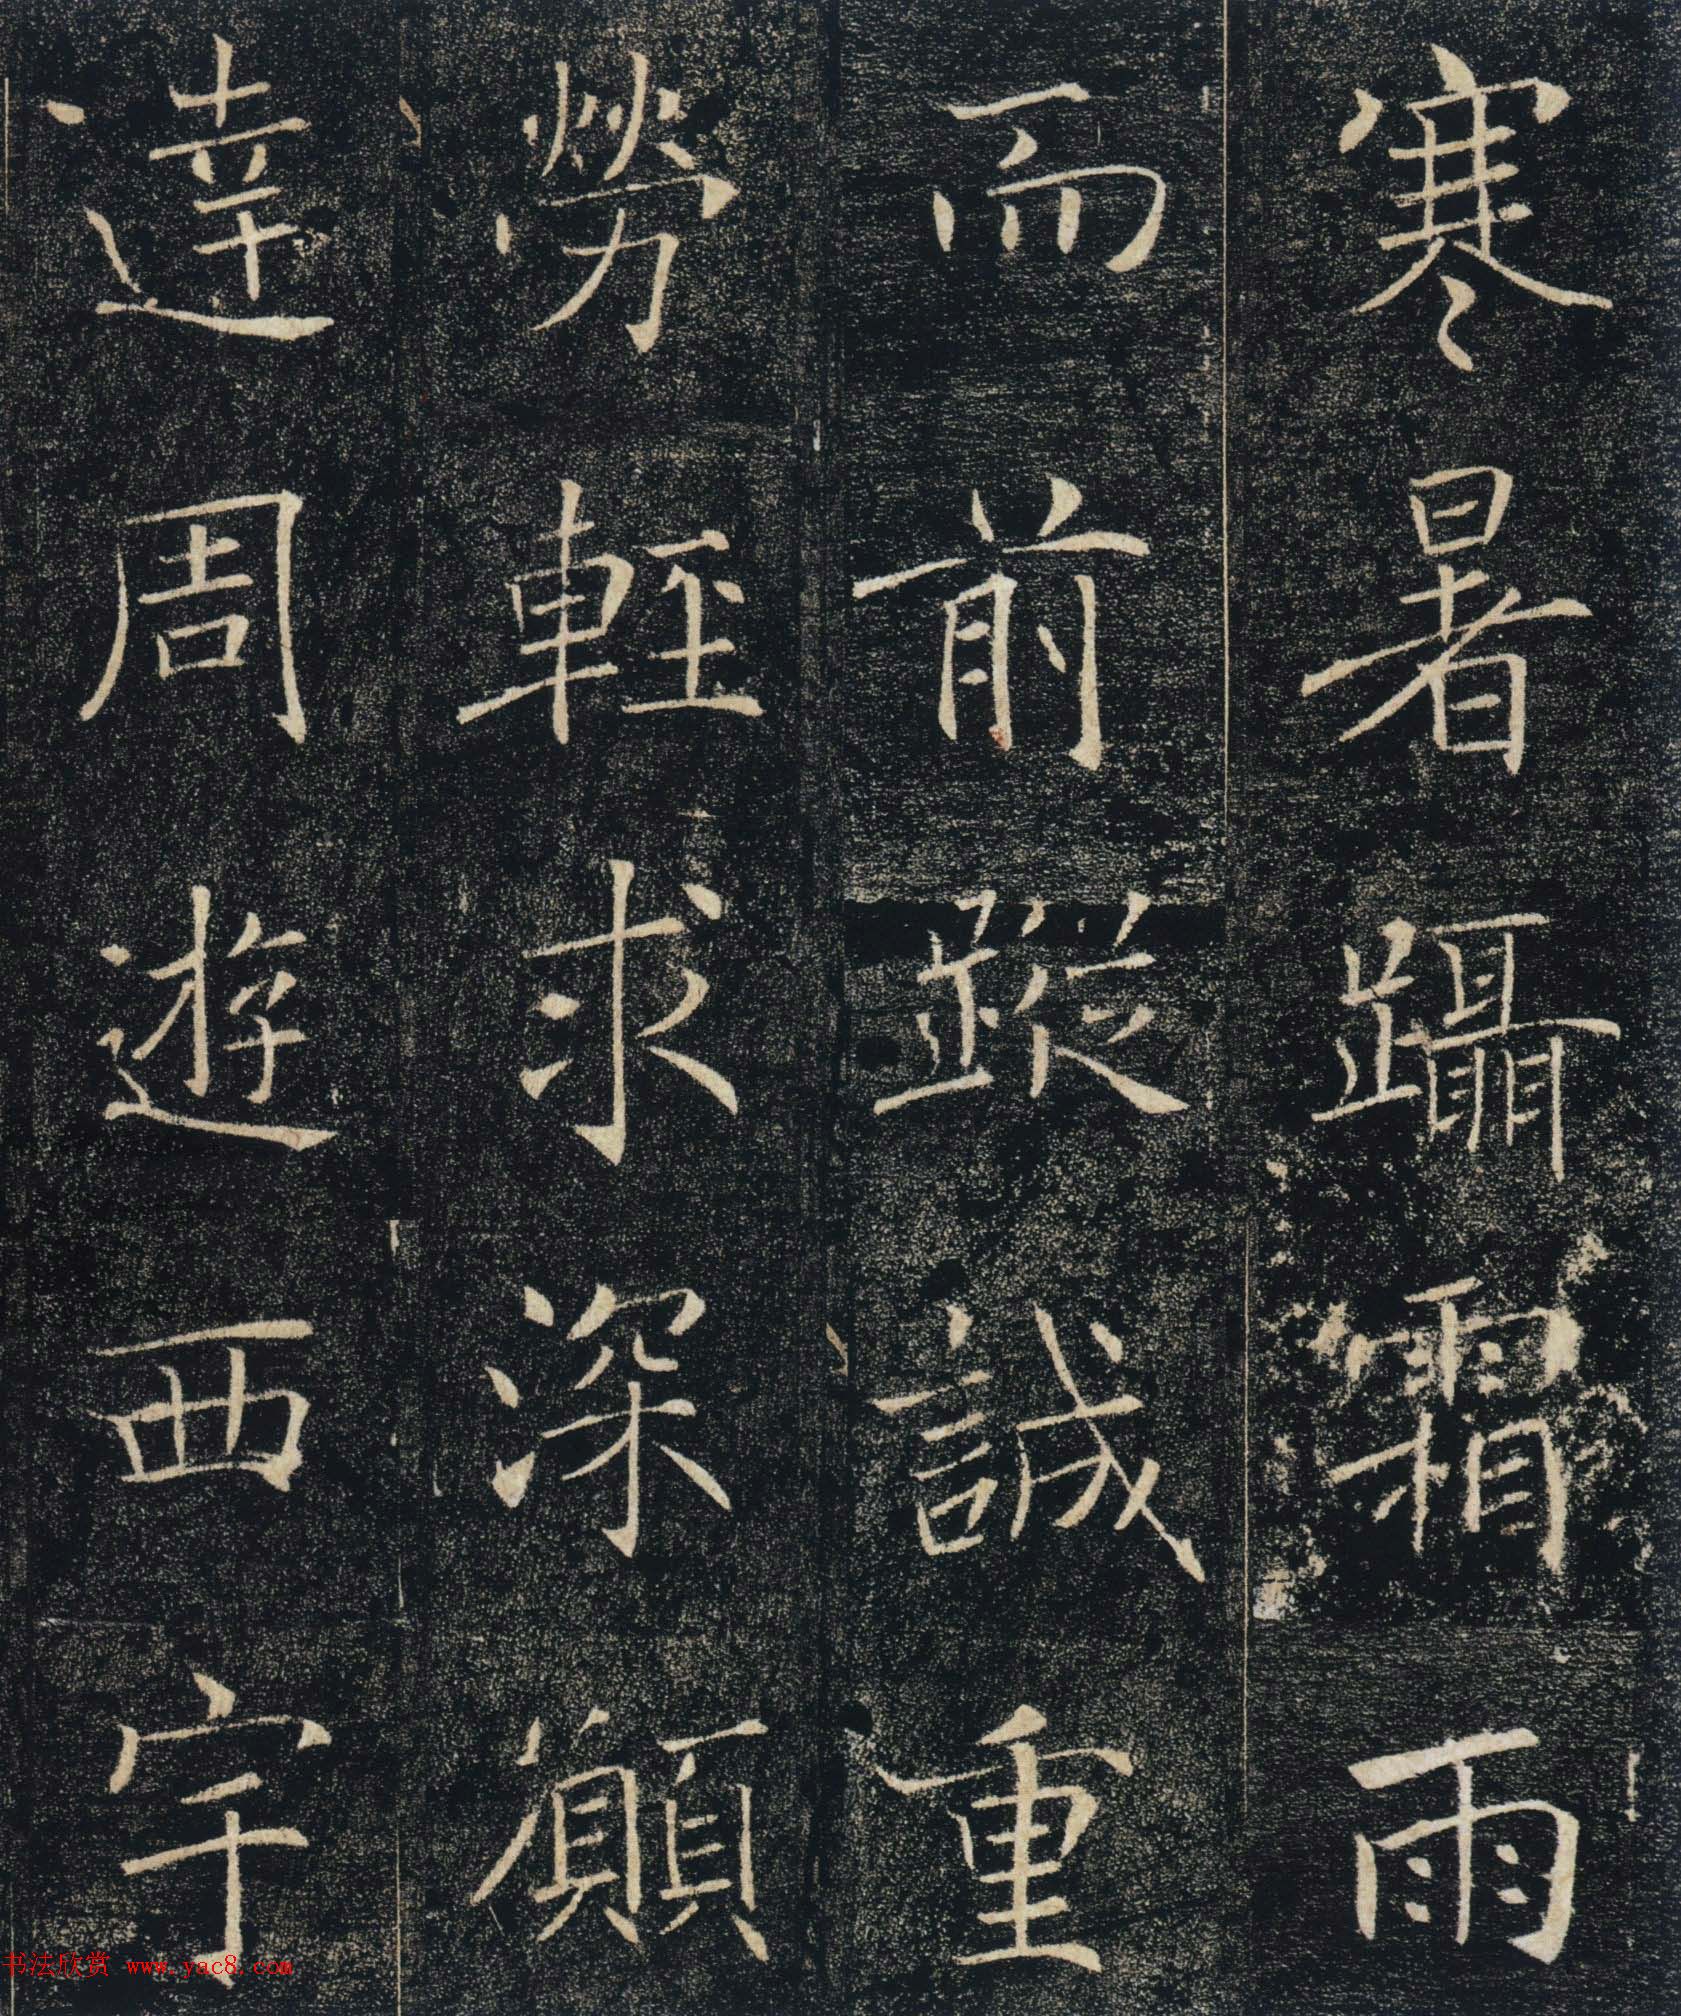 寒暑躡霜雨
而前蹤誠重
勞輕求深願
達周遊西宇
书法欣赏 www.yac8.com